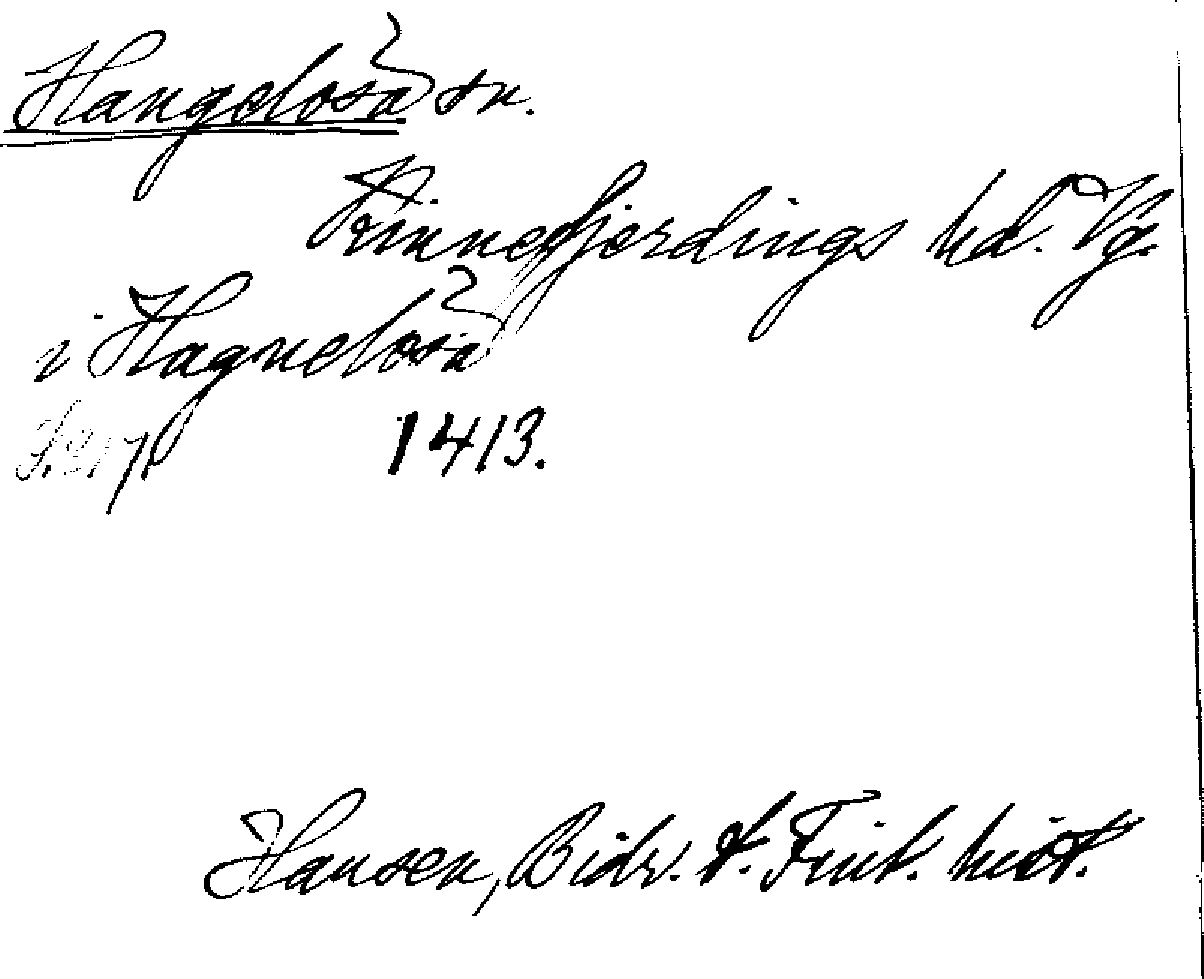 Hangelösa sn.
Kinnefjerdings hd. Vg.
i Hagnelösa
S. 217. 1413.
Hausen, Bidr. t. Finl. hist.